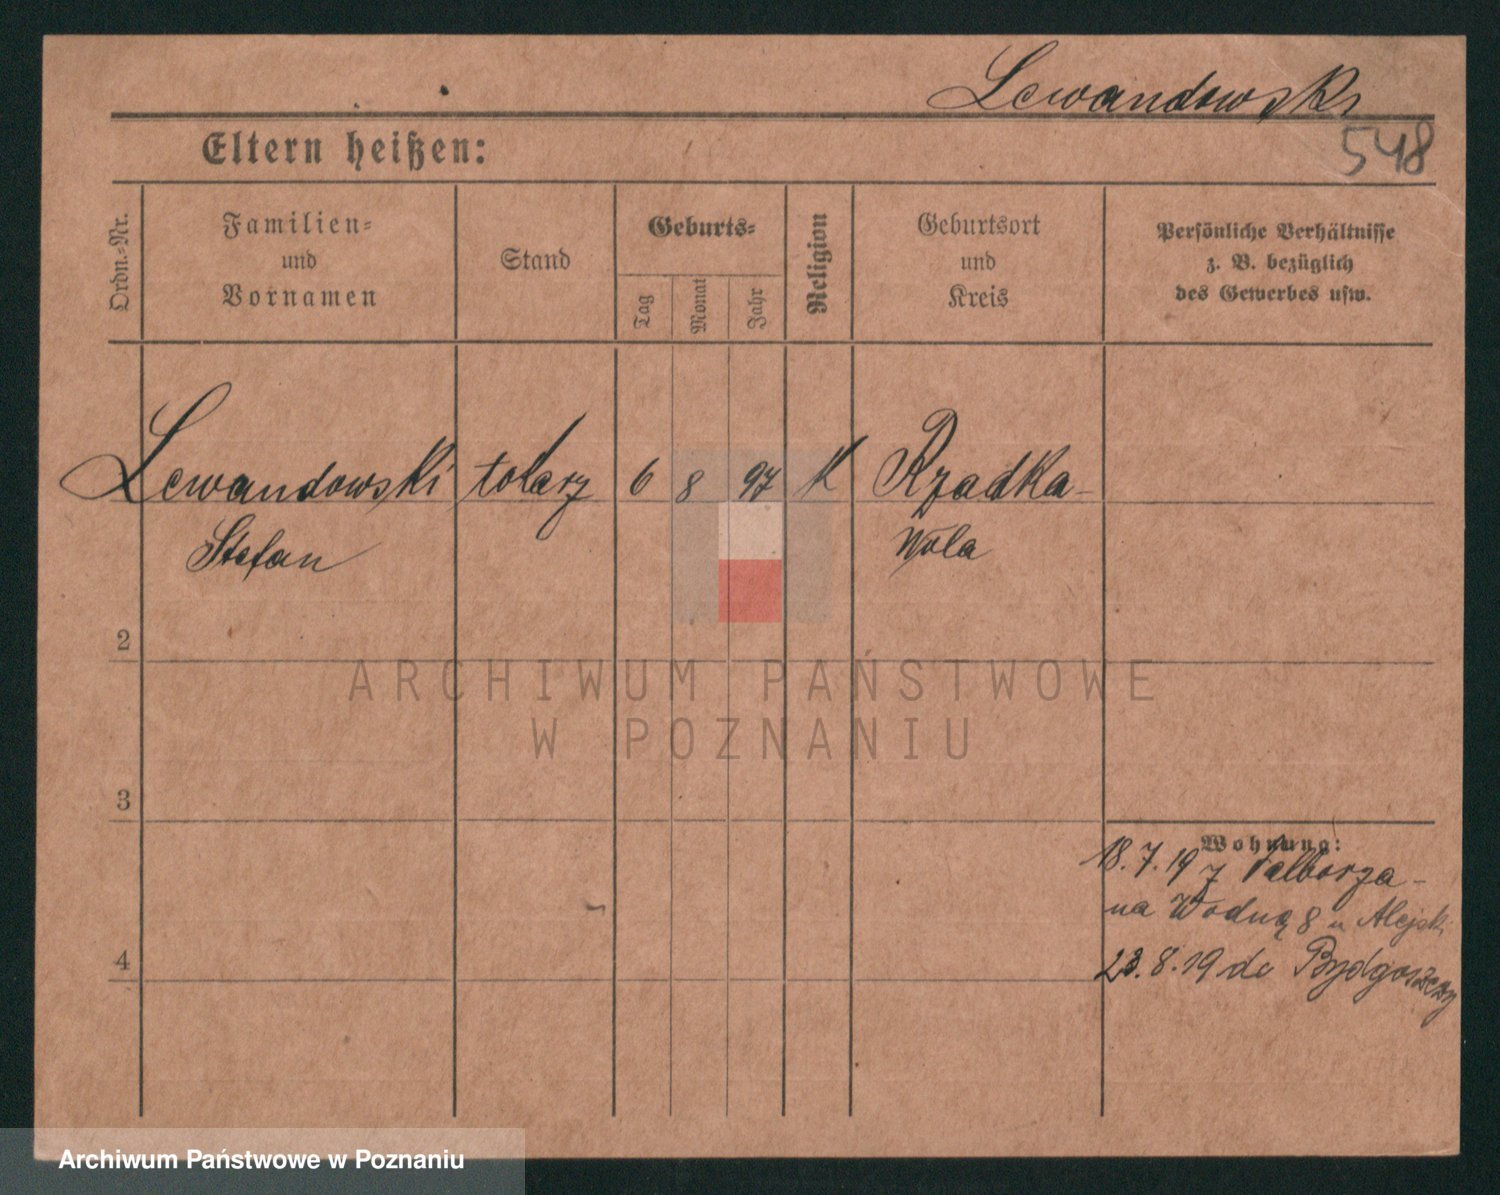 Lewandowski
548
Eltern heißen:
Ordn.-Nr.
Familien-
und
Vornamen
Stand
Geburts-
Tag
Monat
Jahr
Religion
Geburtsort
und
Kreis
Persönliche Verhältnisse
z. B. bezüglich
des Gewerbes usw.
Lewandowski tokarz 6 8 97 K Rzadka-
Stefan Wola
2
ARCHIWUM PAŃSTWOWE
W POZNANIU
3
Wohnung:
18.7.19 z Falborza -
na Wodną 8 u
4
23.8.19 do Bydgoszczy
Archiwum Państwowe w Poznaniu